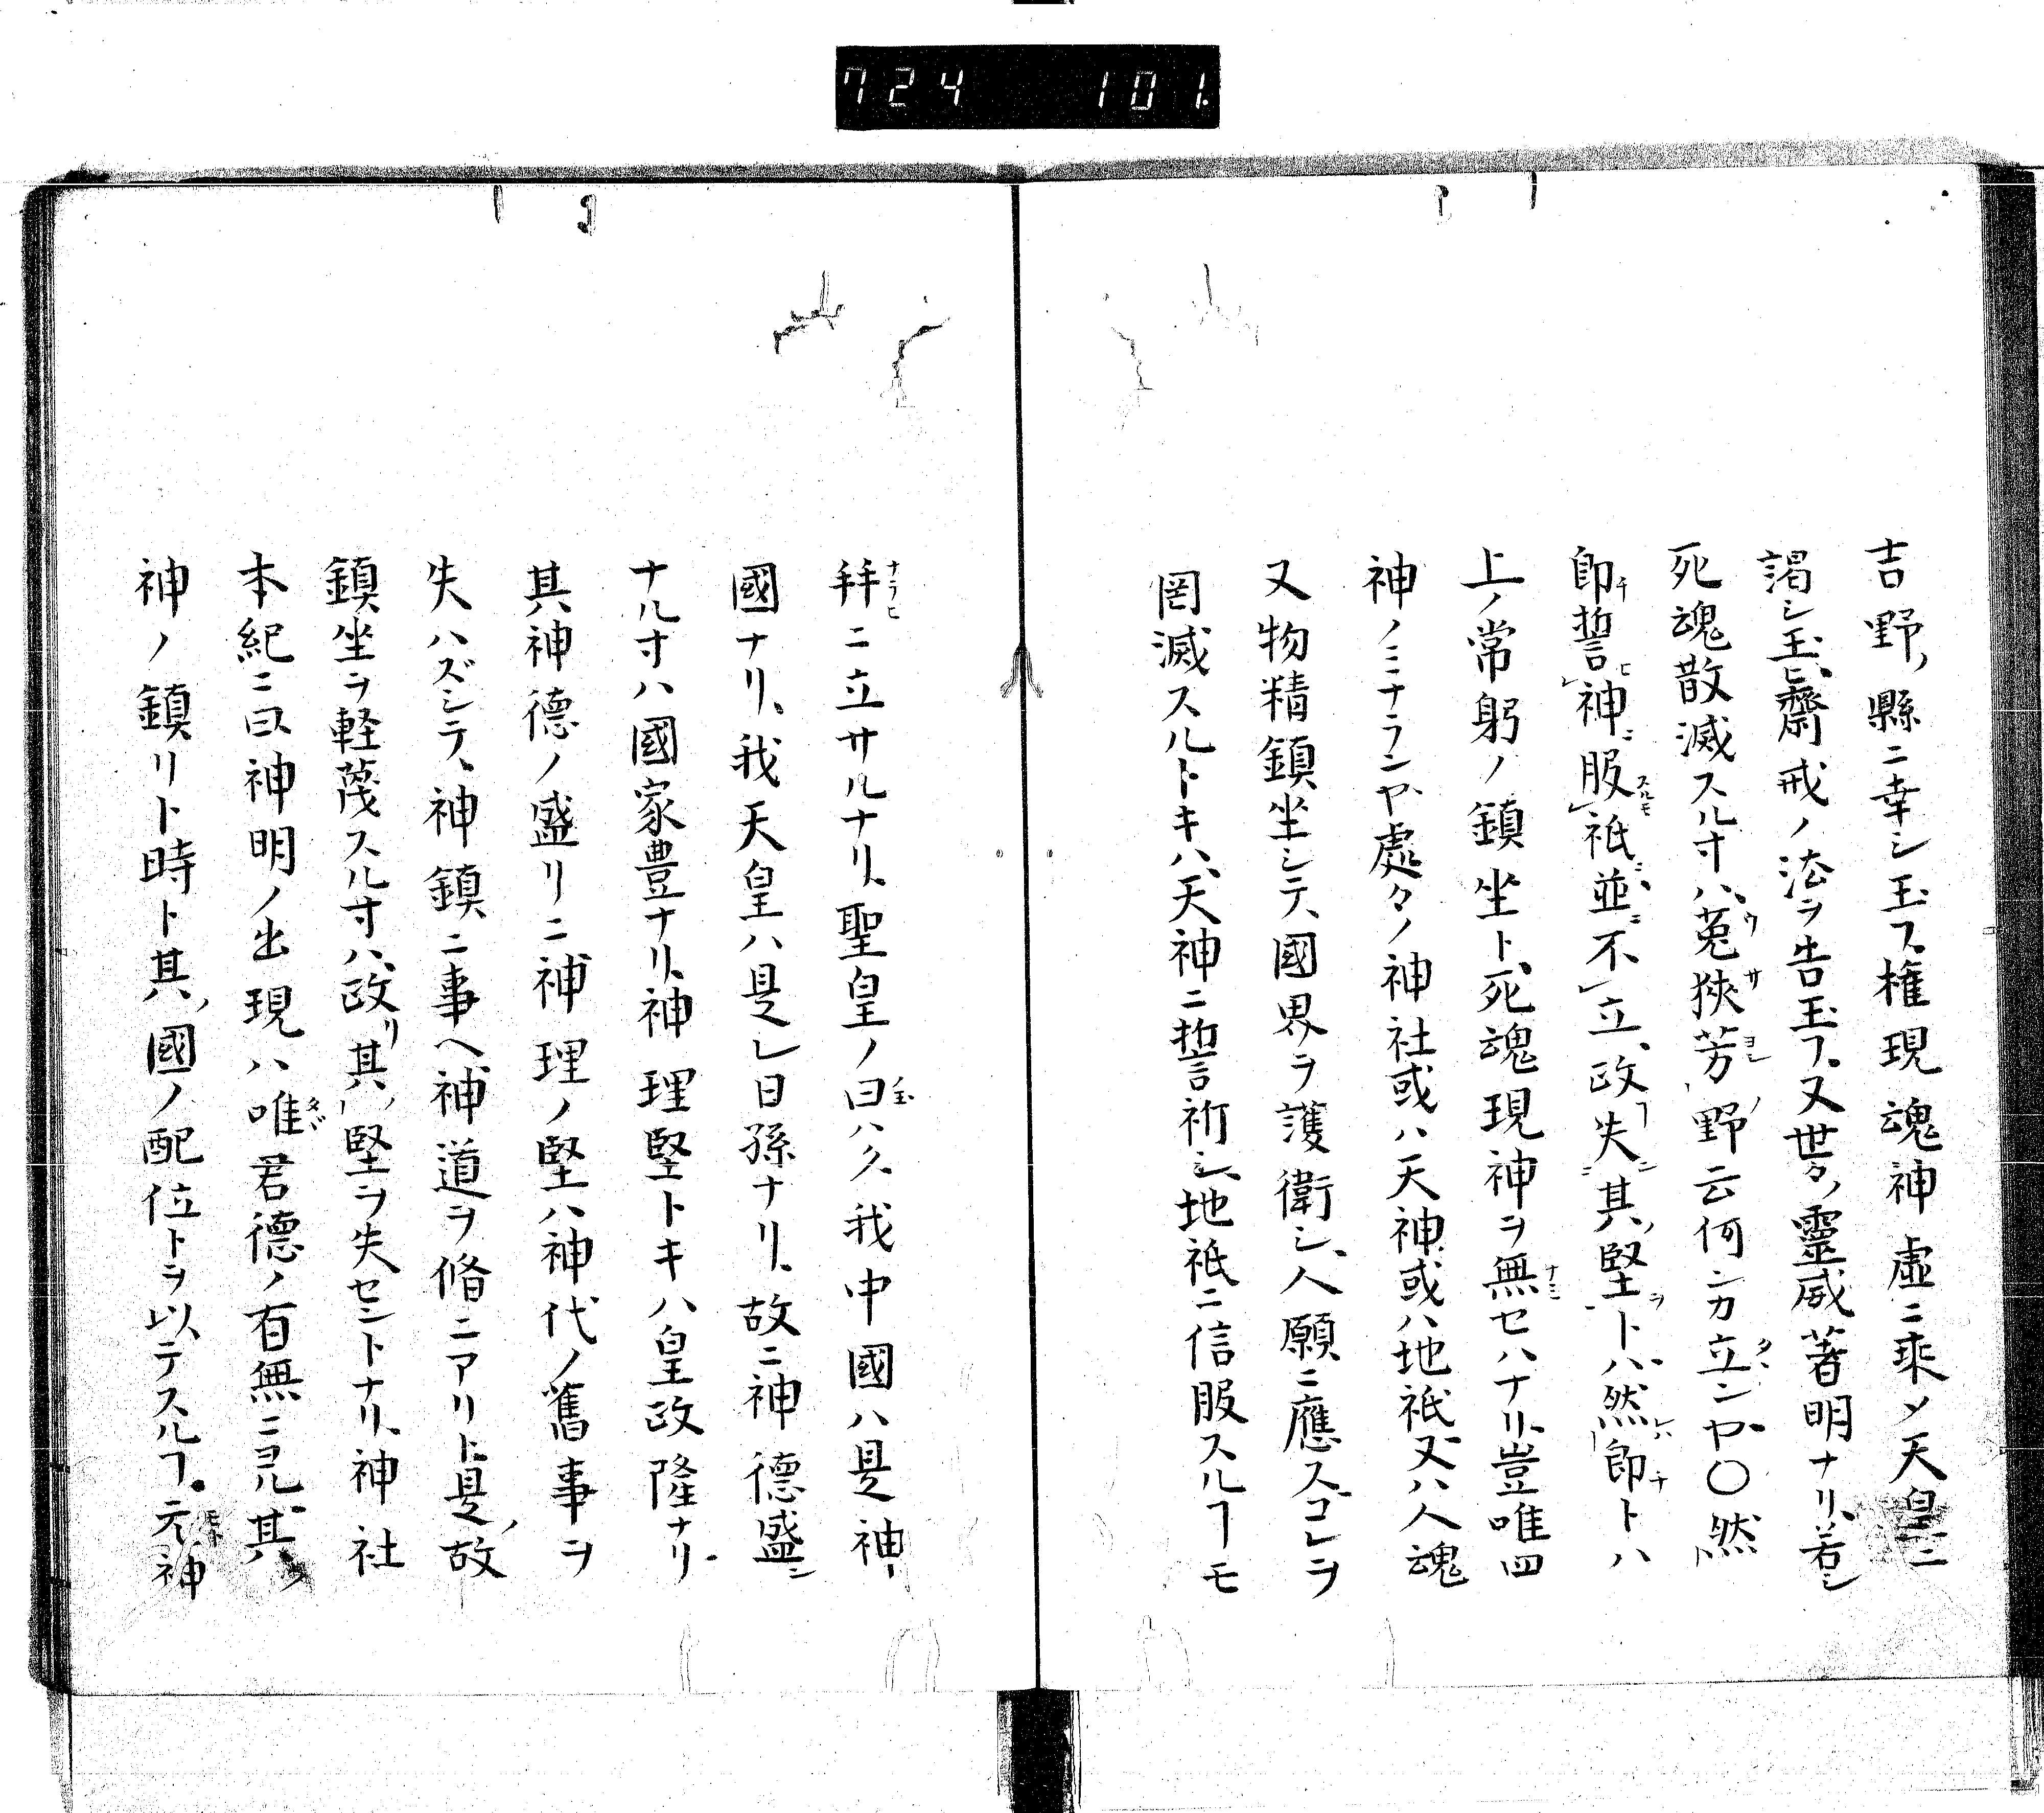 724 101.
吉野ノ縣ニ幸シ玉フ、権現魂神虚ニ乘〆天皇ニ
謁シ玉ヒ、齋戒ノ法ヲ告玉フ、又世々ノ靈威著明ナリ、若シ
死魂散滅スル寸ハ、菟狹芳ノ野云何ンカ立ンヤ○然
即誓神服祇並不立、政失其堅トハ然即トハ
上ノ常躬ノ鎮坐ト、死魂現神ヲ無セハナリ、豈唯四
神ノミナランヤ、處々ノ神社或ハ天神、或ハ地祇、又ハ人魂
又物精鎮坐シテ、國界ヲ護衛シ、人願ニ應ス、コレヲ
罔滅スルトキハ、天神ニ誓祈シ、地祇ニ信服スルヿモ
拜ニ立サルナリ、聖皇ノ曰ハク、我中國ハ是神
國ナリ、我天皇ハ是レ日孫ナリ、故ニ神德盛ン
ナル寸ハ國家豊ナリ、神理堅トキハ皇政隆ナリ
其神德ノ盛リニ神理ノ堅ハ神代ノ舊事ヲ
失ハズシテ、神鎮ニ事ヘ、神道ヲ脩ニアリト、是ノ故
鎮坐ヲ軽蔑スル寸ハ、政リ其ノ堅ヲ失セントナリ、神社
本紀ニ曰神明ノ出現ハ唯君德ノ有無ニヨル、其ノ
神ノ鎮リト時ト其ノ國ノ配位トヲ以テスルヿ、元神